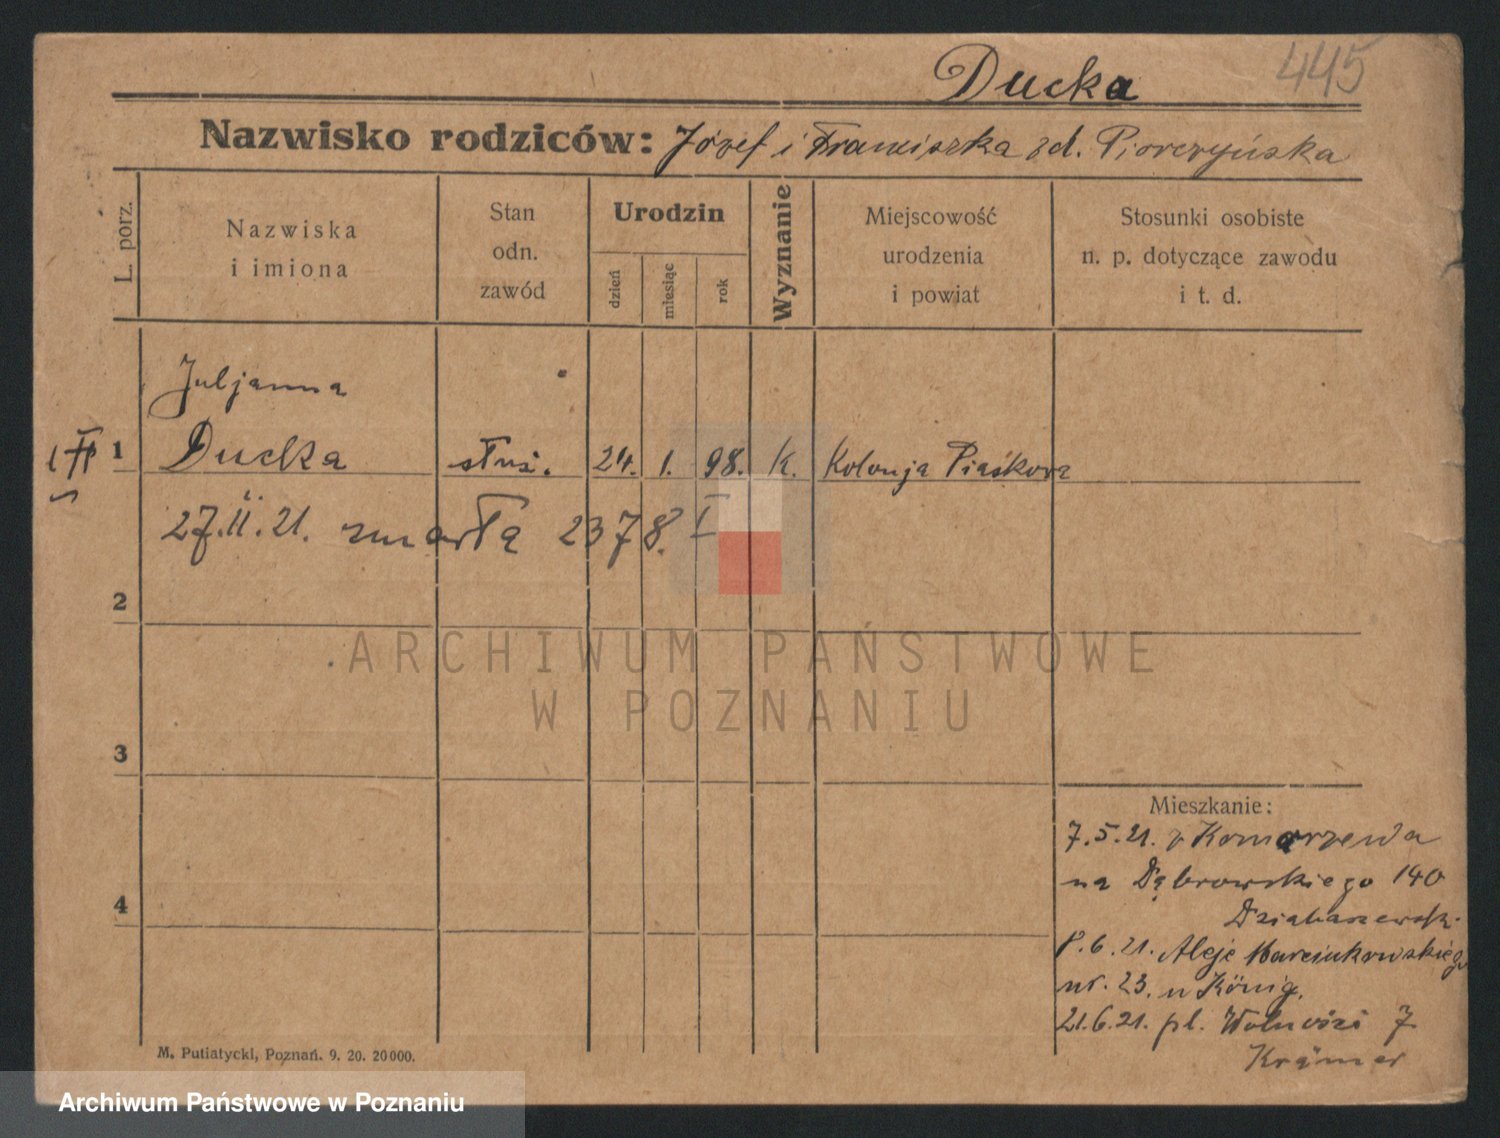 Ducka 445
Nazwisko rodziców: Józef i Franciszka zd.
L. porz.
Nazwiska
i imiona
Stan
odn.
zawód
Urodzin
dzień
miesiąc
rok
Wyznanie
Miejscowość
urodzenia
i powiat
Stosunki osobiste
n. p. dotyczące zawodu
i t. d.
Juljanna
1 Ducka służ. 24. 1. 98. K. Kolonja Piaskowa
27.II.21. zmarła 2378. I
2
3
4
Mieszkanie:
7.5.21. z Komorzewa
na Dąbrowskiego 140
8.6.21. Aleje Marcinkowskiego
nr. 23. u König.
21.6.21. pl. Wolności 7
Krämer
M. Putiatycki, Poznań. 9. 20. 20000.
ARCHIWUM PAŃSTWOWE
W POZNANIU
Archiwum Państwowe w Poznaniu